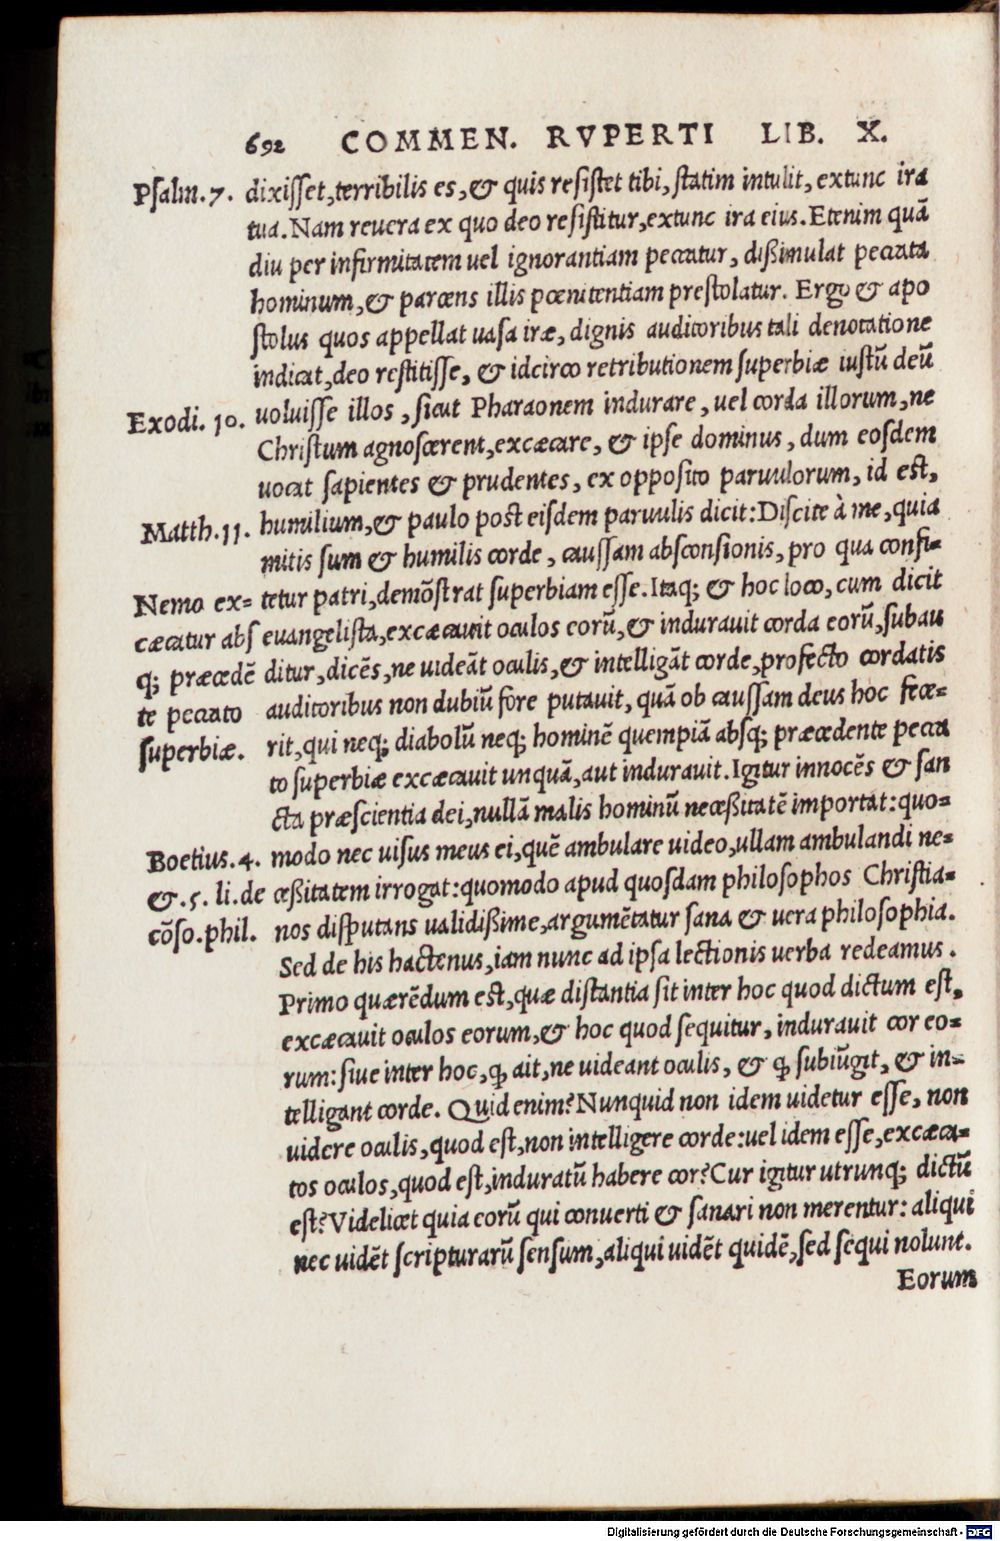 692 COMMEN. RVPERTI LIB. X.
Psalm. 7. dixisset, terribilis es, & quis resistet tibi, statim intulit, extunc ira
tua. Nam reuera ex quo deo resistitur, extunc ira eius. Etenim quã
diu per infirmitatem uel ignorantiam peccatur, dißimulat peccata
hominum, & parcens illis pœnitentiam prestolatur. Ergo & apo
stolus quos appellat uasa iræ, dignis auditoribus tali denotatione
indicat, deo restitisse, & idcirco retributionem superbiæ iustũ deũ
Exodi. 10. uoluisse illos, sicut Pharaonem indurare, uel corda illorum, ne
Christum agnoscerent, excæcare, & ipse dominus, dum eosdem
uocat sapientes & prudentes, ex opposito paruulorum, id est,
Matth. 11. humilium, & paulo post eisdem paruulis dicit: Discite à me, quia
mitis sum & humilis corde, caussam absconsionis, pro qua confi=
Nemo ex= tetur patri, demõstrat superbiam esse. Itaq; & hoc loco, cum dicit
cæcatur abs euangelista, excæcauit oculos eorũ, & indurauit corda eorũ, subau
q; præcedẽ ditur, dicẽs, ne uideãt oculis, & intelligãt corde, profecto cordatis
te peccato auditoribus non dubiũ fore putauit, quã ob caussam deus hoc fece=
superbiæ. rit, qui neq; diabolũ neq; hominẽ quempiã absq; præcedente pecca
to superbiæ excæcauit unquã, aut indurauit. Igitur innocẽs & san
cta præscientia dei, nullã malis hominũ neceßitatẽ importat: quo=
Boetius. 4. modo nec uisus meus ei, quẽ ambulare uideo, ullam ambulandi ne=
&. 5. li. de ceßitatem irrogat: quomodo apud quosdam philosophos Christia=
cõso. phil. nos disputans ualidißime, argumẽtatur sana & uera philosophia.
Sed de his hactenus, iam nunc ad ipsa lectionis uerba redeamus.
Primo quærẽdum est, quæ distantia sit inter hoc quod dictum est,
excæcauit oculos eorum, & hoc quod sequitur, indurauit cor eo=
rum: siue inter hoc, ꝙ ait, ne uideant oculis, & ꝙ subiũgit, & in=
telligant corde. Quid enim? Nunquid non idem uidetur esse, non
uidere oculis, quod est, non intelligere corde: uel idem esse, excæca=
tos oculos, quod est, induratũ habere cor? Cur igitur utrunq; dictũ
est? Videlicet quia eorũ qui conuerti & sanari non merentur: aliqui
nec uidẽt scripturarũ sensum, aliqui uidẽt quidẽ, sed sequi nolunt.
Eorum
Digitalisierung gefördert durch die Deutsche Forschungsgemeinschaft - DFG